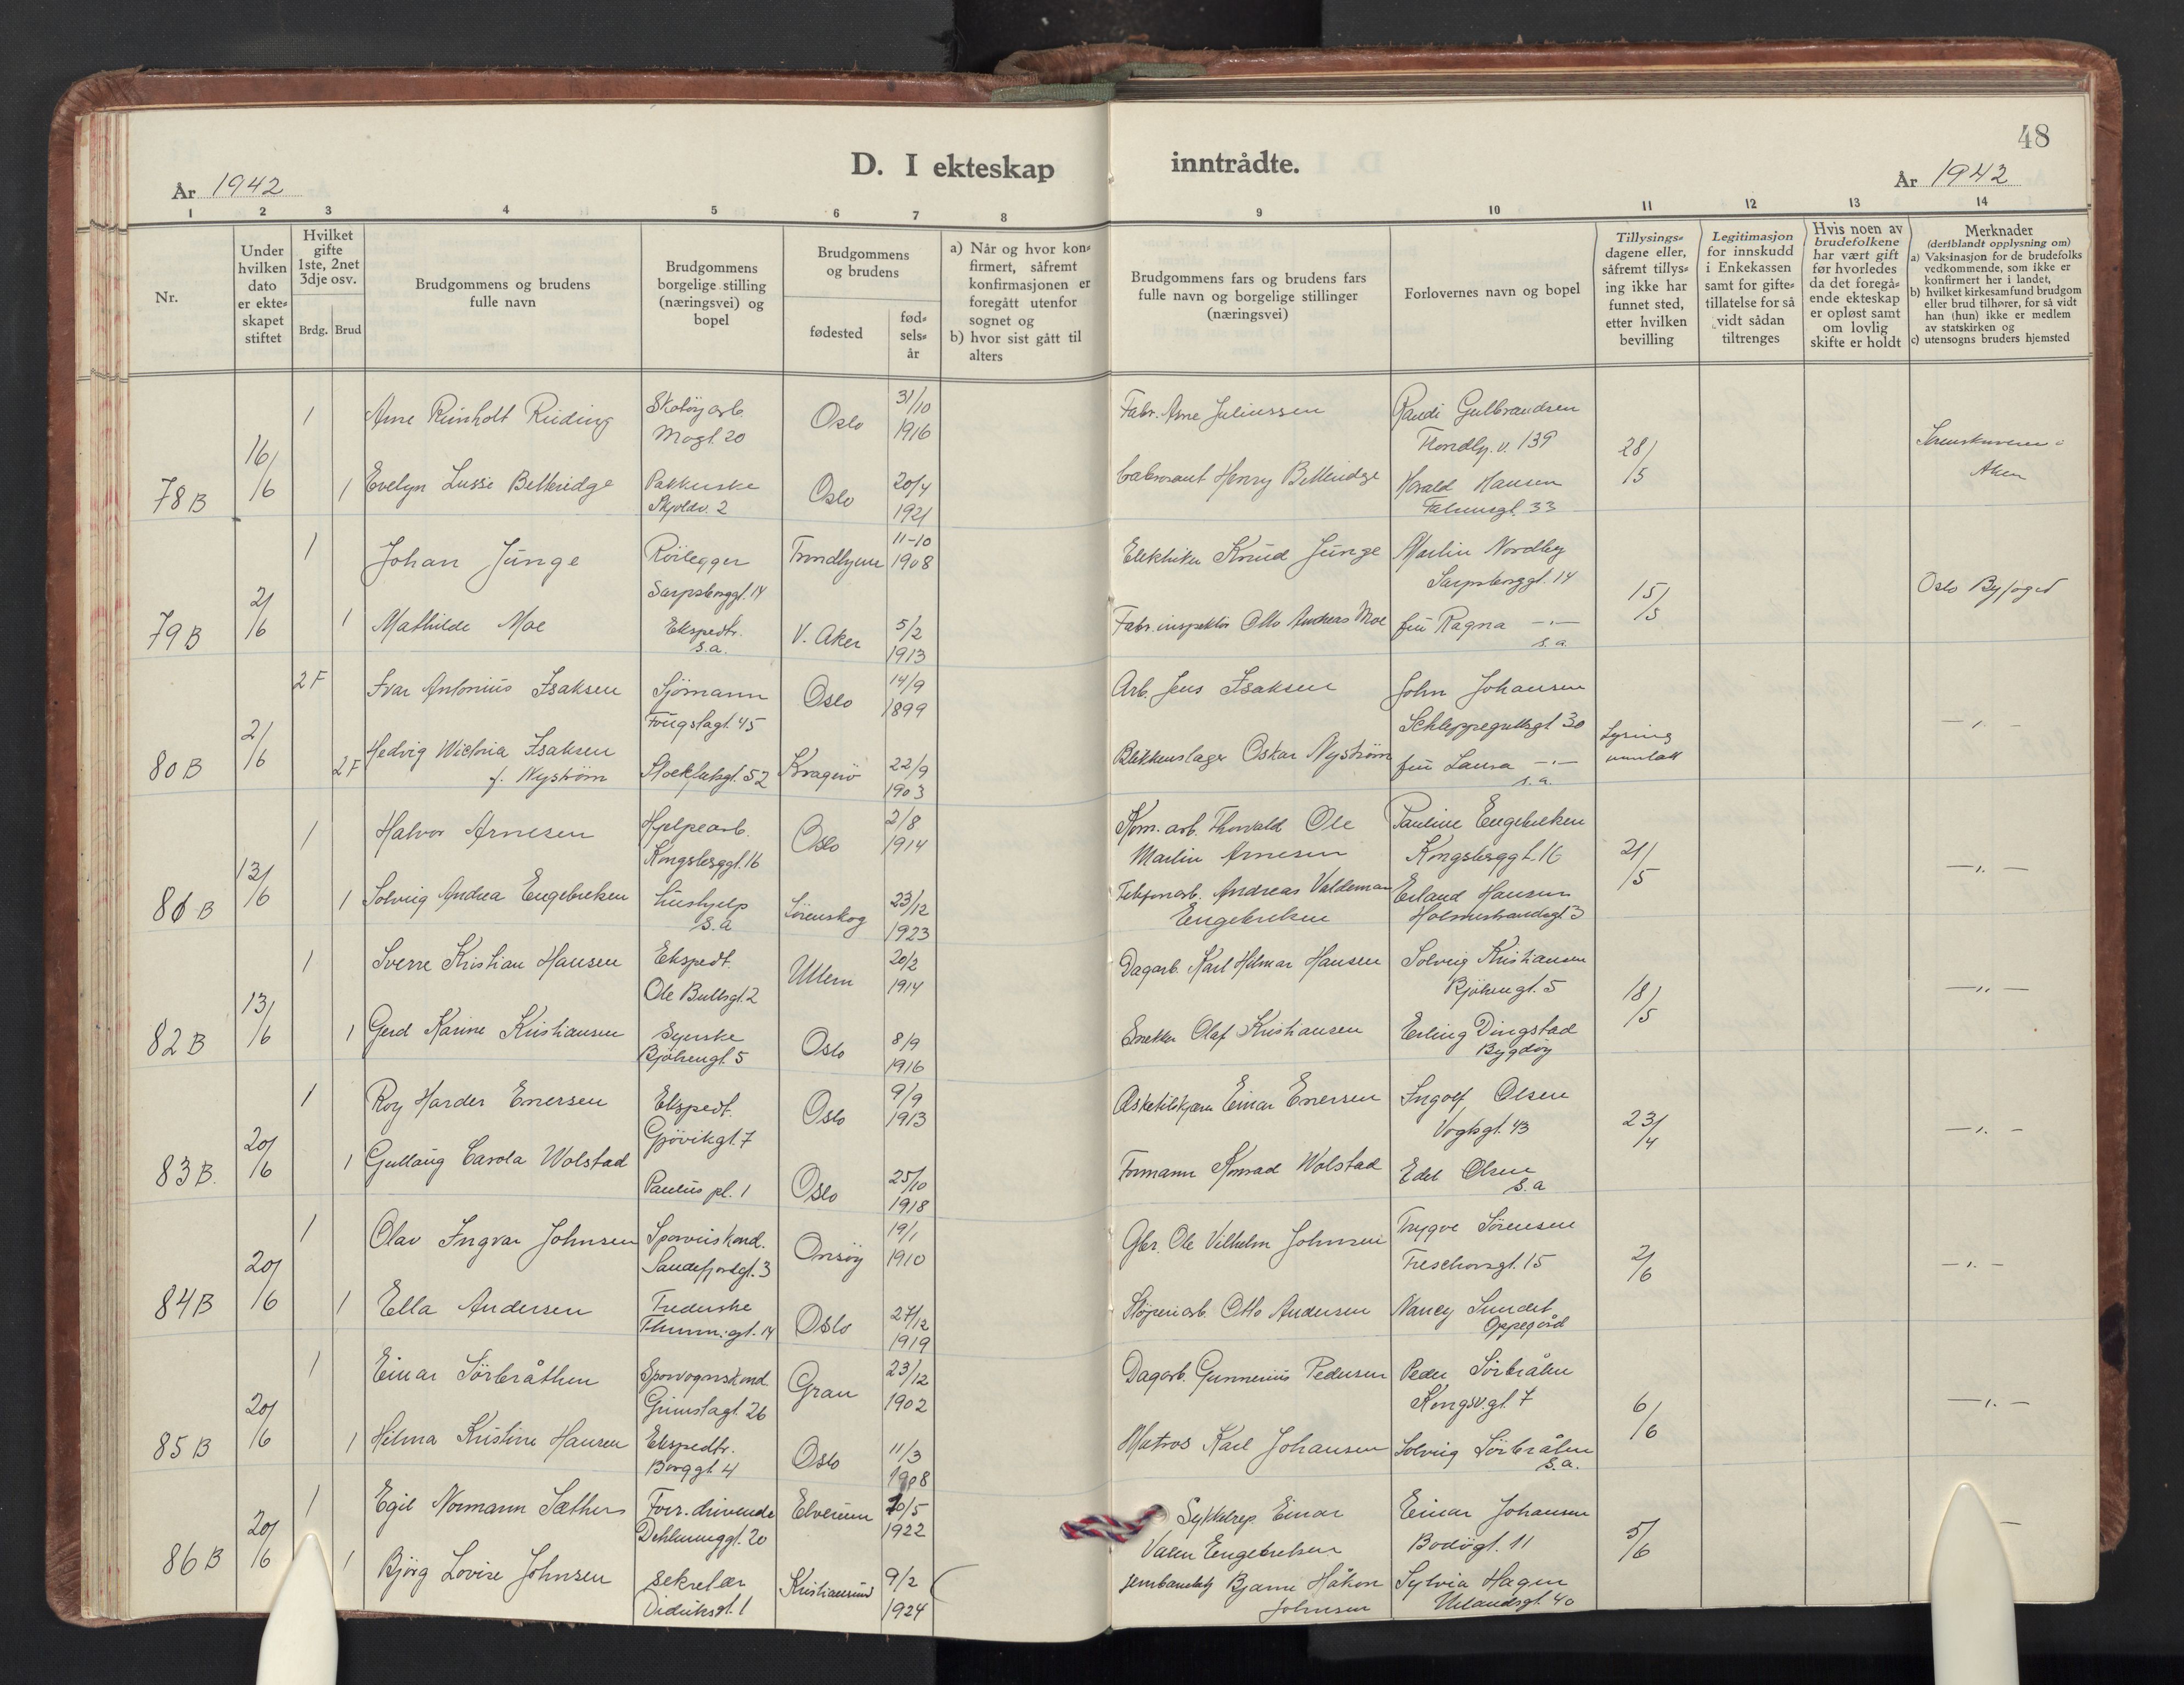 48
D. I ekteskap inntrådte.
År 1942
År 1942
1 2 3 4 5 6 7 8 9 10 11 12 13 14
Nr.
Under
hvilken
dato
er ekte=
skapet
stiftet
Hvilket
gifte
1ste, 2net
3dje osv.
Brdg. Brud
Brudgommens og brudens
fulle navn
Brudgommens
borgelige stilling
(næringsvei) og
bopel
Brudgommens
og brudens
fødested
fød=
sels=
år
a) Når og hvor kon=
firmert, såfremt
konfirmasjonen er
foregått utenfor
sognet og
b) hvor sist gått til
alters
Brudgommens fars og brudens fars
fulle navn og borgelige stillinger
(næringsvei)
Forlovernes navn og bopel
Tillysings=
dagene eller,
såfremt tillys=
ing ikke har
funnet sted,
etter hvilken
bevilling
Legitimasjon
for innskudd
i Enkekassen
samt for gifte=
tillatelse for så
vidt sådan
tiltrenges
Hvis noen av
brudefolkene
har vært gift
før hvorledes
da det foregå=
ende ekteskap
er opløst samt
om lovlig
skifte er holdt
Merknader
(deriblandt opplysning om)
a) Vaksinasjon for de brudefolks
vedkommende, som ikke er
konfirmert her i landet,
b) hvilket kirkesamfund brudgom
eller brud tilhører, for så vidt
han (hun) ikke er medlem
av statskirken og
c) utensogns bruders hjemsted
1 Arne Reinholt Oslo 31/10 Fabr. Arne Juliussen Randi Gulbrandsen
Mogt. 20 1916 Trondhj. v. 139
78B 16/6 1 Evelyn Lusse Betteridge Pakkerske Oslo 20/4 Henry Betteridge Harald Hansen 28/5 Aker
Skjoldv. 2 1921 Falsensgt. 33
1 Johan Junge Rörlegger Trondhjem 11-10 1908 Elektriker Knud Junge Martin Nordby
Sarpsborggt. 14 Sarpsborggt. 14
79B 2/6 1 Mathilde Moe Ekspedtr. V. Aker 5/2 Fabr. inspektör Otto Andreas Moe fru Ragna —„— 15/5 Oslo Byfoged
s.a. 1913 s.a.
2F Ivar Antonius Isaksen Sjömann Oslo 14/9 Arb. Jens Isaksen John Johansen
Fougstagt. 45 1899 Schleppegrellsgt 30
80B 2/6 2F Hedvig Wictoria Isaksen Blikkenslager Oskar Nyström fru Laura —„— Lysning —„—
f. Nyström Stockflethsgt. 52 Kragerö 22/9 1903 s.a. unnlatt
1 Halvor Arnesen Hjelpearb. Oslo 2/8 Kom. arb. Thorvald Ole Pauline Engebretsen
Kongsberggt. 16 1914 Martin Arnesen Kongsberggt. 16
81B 13/6 1 Solveig Andrea Engebretsen Hushjelp Lörenskog 23/12 Telefonarb. Andreas Valdemar Erland Hansen 21/5 —„—
s.a 1923 Engebretsen Holmestrandsgt 3
1 Sverre Kristian Hansen Ekspedt. Ullern 20/2 Dagarb. Karl Hilmar Hansen Solveig Kristiansen
Ole Bullsgt. 2 1914 Bjölsengt. 5
82B 13/6 1 Gerd Karine Kristiansen Syerske Oslo 8/9 Snekker Olaf Kristiansen Erling Dingstad 18/5 —„—
Bjölsengt. 5 1916 Bygdöy
1 Roy Harder Enersen Ekspedt. Oslo 9/9 Einar Enersen Ingolf Olsen
Gjövikgt. 7 1913 Vogtsgt. 43
83B. 20/6 1 Gullaug Carola Wolstad Paulus pl. 1 Oslo 25/10 Formann Konrad Wolstad Edel Olsen 23/4 —„—
1918 s.a
1 Olav Ingvar Johnsen Sporveiskond. Onsöy 19/1 Gbr. Ole Vilhelm Johnsen Trygve Sörensen
Sandefjordgt. 3 1910 Treschowsgt. 15
84B 20/6 1 Ella Andersen Oslo 27/12 Støperiarb. Otto Andersen Nancy Sundet 2/6 —„—
Thurm.gt. 14 1919 Oppegård
1 Einar Sörbråthen Sporvognskond Gran 23/12 Dagarb. Gunnerius Pedersen Peder Sörbråten
Grimstagt. 26 1902 Kongsv.gt. 7
85B 20/6 1 Hilma Kristine Hansen Ekspedtr. Oslo 11/3 Matros Karl Johansen Solveig Sörbråten 6/6 —„—
Borggt. 4 1908 s.a.
1 Egil Normann Sæthers Forr. drivende Elverum 20/5 Sykkelrep. Einar Einar Johansen
Dehlinggt. 20 1922 Valen Engebretsen Bodögt. 11
86B 20/6 1 Björg Lovise Johnsen sekretær Kristiansund 9/2 Bjarne Håkon Sylvia Hagen 5/6 —
Didriksgt. 1 1924 Johnsen Uelandsgt. 40